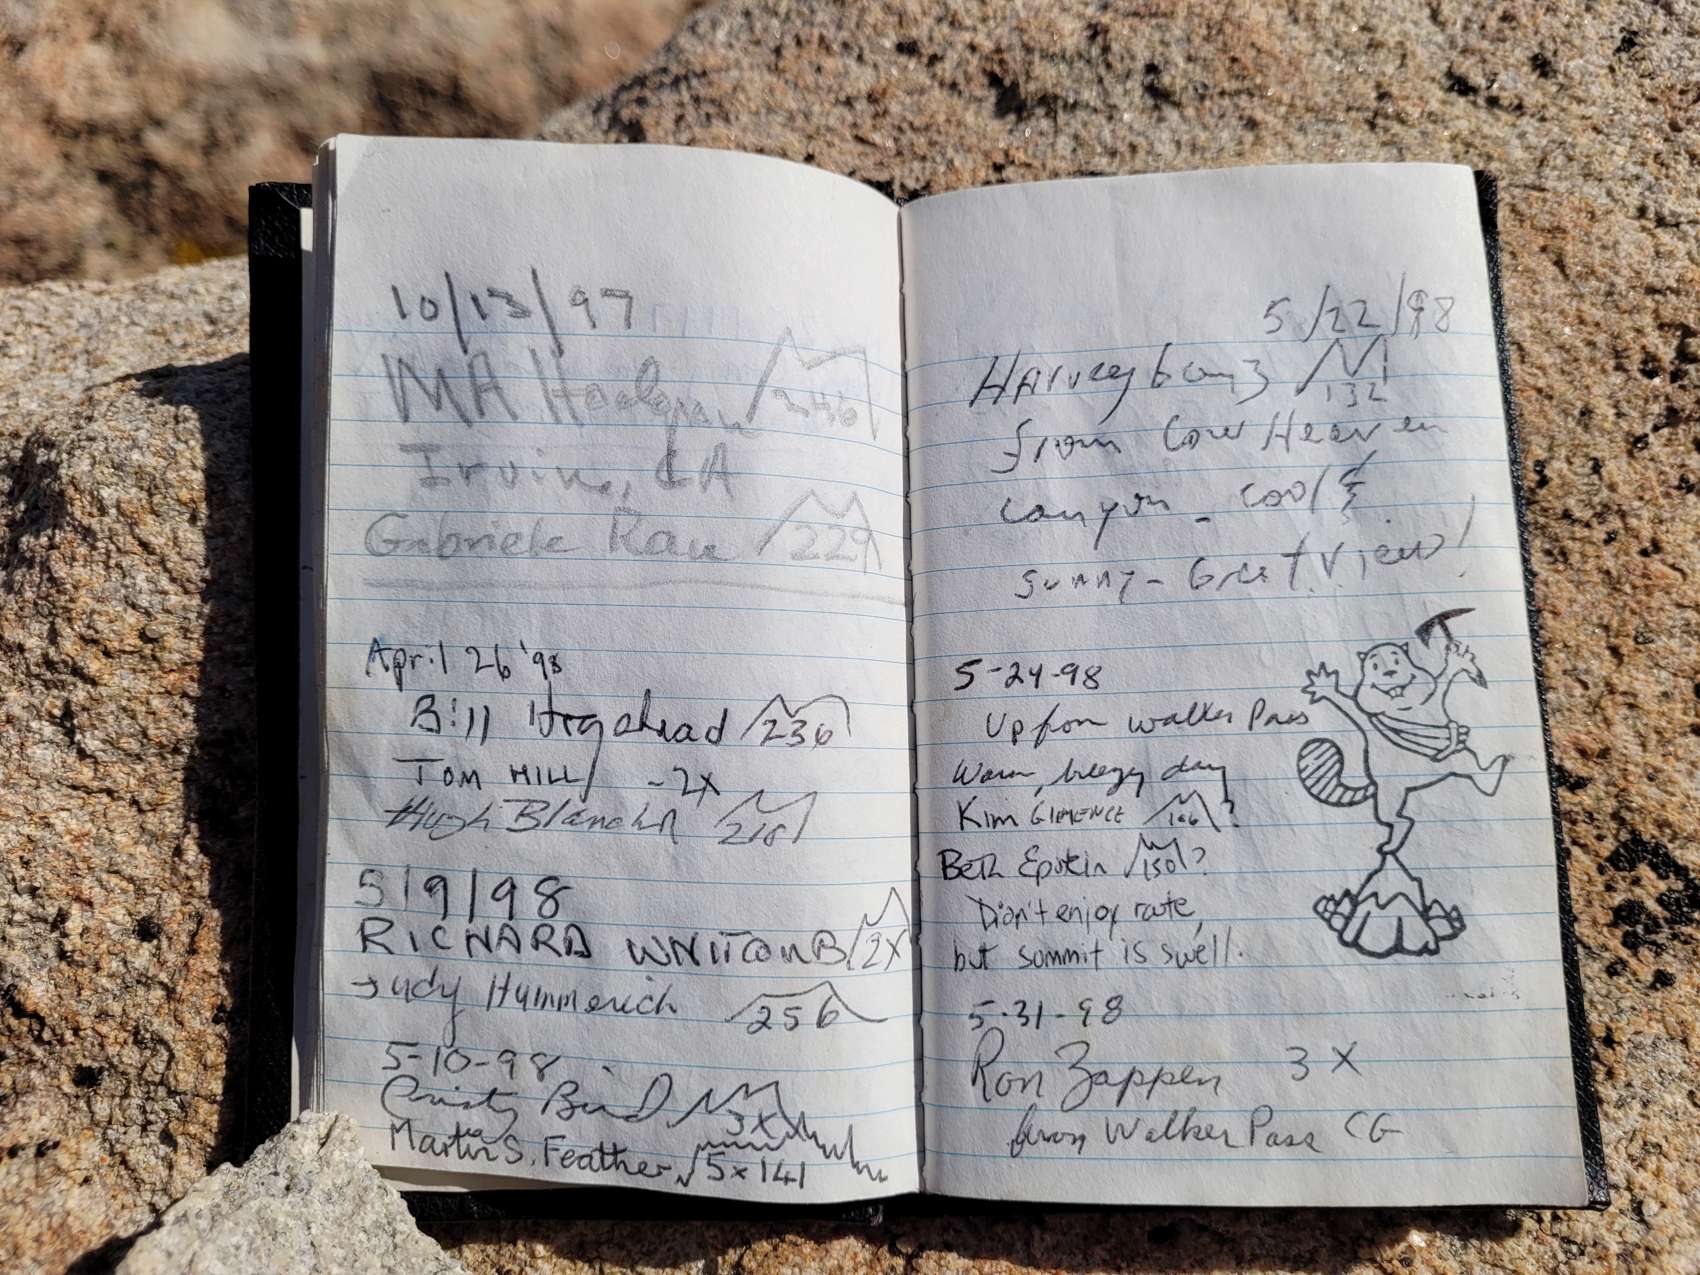 10/13/97
MA
Irvine, CA
Gabriele Rau 229
April 26 '98
Bill 236
TOM HILL - 2X
Hugh 218
5/9/98
RICHARD 2X
Judy Hummerich 256
5-10-98
Christy Bird 3X
Martin S. Feather √5x141
5/22/98
HArvey 132
from Cow Heaven
canyon - cool &
sunny - Great View!
5-24-98
Up from Walker Pass
Warm, breezy day
Kim CLEMENCE 166?
Beth Epstein 150?
Didn't enjoy route,
but summit is swell.
5-31-98
Ron Zappen 3X
from Walker Pass CG